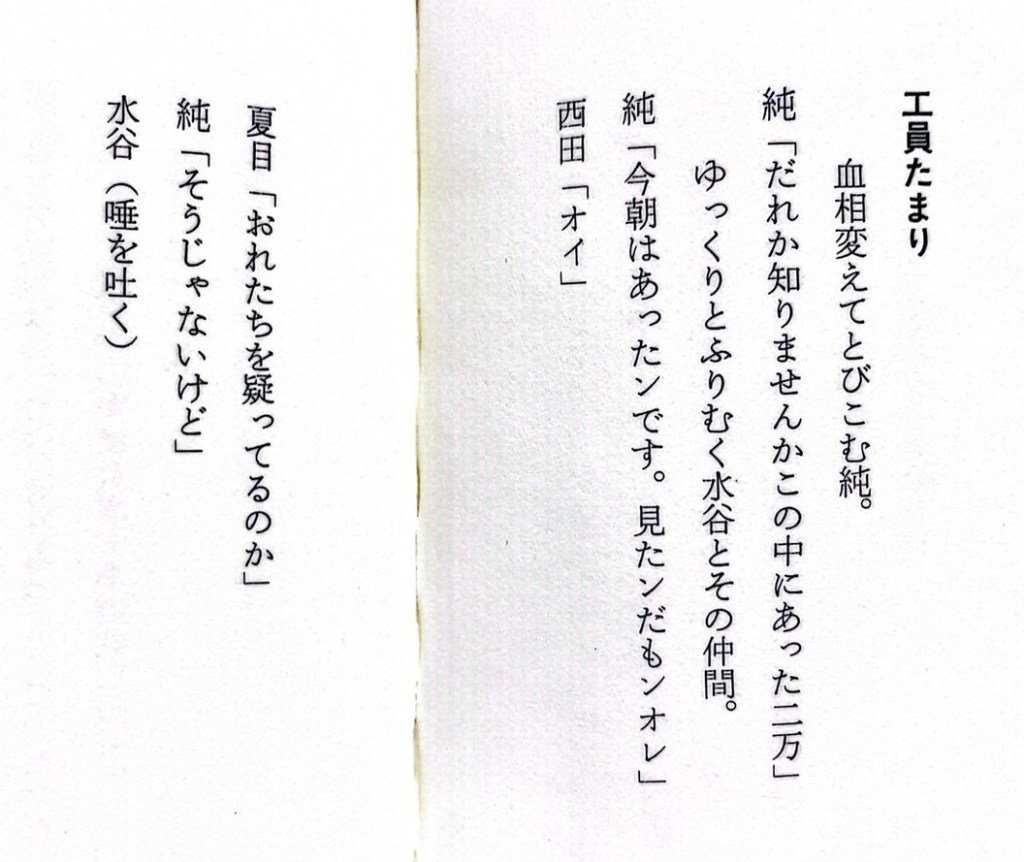 工員たまり
血相変えてとびこむ純。
純「だれか知りませんかこの中にあった二万」
ゆっくりとふりむく水谷とその仲間。
純「今朝はあったンです。見たンだもンオレ」
西田「オイ」
夏目「おれたちを疑ってるのか」
純「そうじゃないけど」
水谷（唾を吐く）